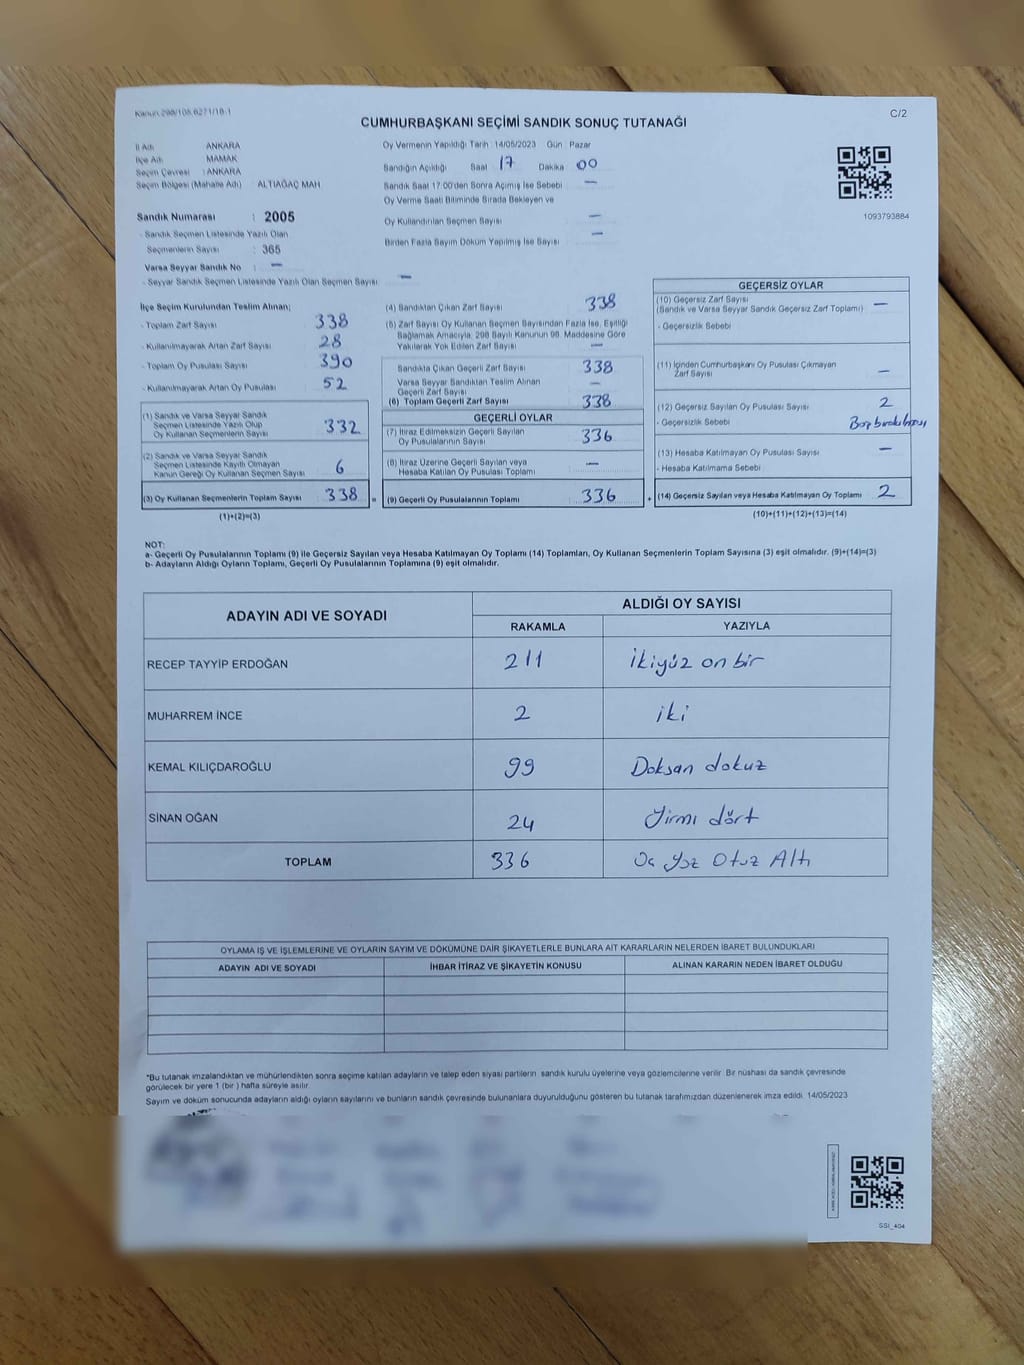 Kanun:298/105,6271/18-1
C/2
CUMHURBAŞKANI SEÇİMİ SANDIK SONUÇ TUTANAĞI
İl Adı : ANKARA
İlçe Adı : MAMAK
Seçim Çevresi : ANKARA
Seçim Bölgesi (Mahalle Adı) : ALTIAĞAÇ MAH
Sandık Numarası : 2005
- Sandık Seçmen Listesinde Yazılı Olan
Seçmenlerin Sayısı : 365
Varsa Seyyar Sandık No : -
- Seyyar Sandık Seçmen Listesinde Yazılı Olan Seçmen Sayısı: -
Oy Vermenin Yapıldığı Tarih : 14/05/2023 Gün : Pazar
Sandığın Açıldığı Saat 17 Dakika 00
Sandık Saat 17:00'den Sonra Açımış İse Sebebi : -
Oy Verme Saati Bitiminde Sırada Bekleyen ve
Oy Kullandırılan Seçmen Sayısı : -
Birden Fazla Sayım Döküm Yapılmış İse Sayısı : -
1093793884
İlçe Seçim Kurulundan Teslim Alınan;
- Toplam Zarf Sayısı : 338
- Kullanılmayarak Artan Zarf Sayısı : 28
- Toplam Oy Pusulası Sayısı : 390
- Kullanılmayarak Artan Oy Pusulası : 52
(1) Sandık ve Varsa Seyyar Sandık
Seçmen Listesinde Yazılı Olup
Oy Kullanan Seçmenlerin Sayısı : 332
(2) Sandık ve Varsa Seyyar Sandık
Seçmen Listesinde Kayıtlı Olmayan
Kanun Gereği Oy Kullanan Seçmen Sayısı : 6
(3) Oy Kullanan Seçmenlerin Toplam Sayısı : 338
(1)+(2)=(3)
(4) Sandıktan Çıkan Zarf Sayısı : 338
(5) Zarf Sayısı Oy Kullanan Seçmen Sayısından Fazla İse, Eşitliği
Bağlamak Amacıyla, 298 Sayılı Kanunun 98. Maddesine Göre
Yakılarak Yok Edilen Zarf Sayısı : -
Sandıkta Çıkan Geçerli Zarf Sayısı : 338
Varsa Seyyar Sandıktan Teslim Alınan
Geçerli Zarf Sayısı : -
(6) Toplam Geçerli Zarf Sayısı : 338
GEÇERLİ OYLAR
(7) İtiraz Edilmeksizin Geçerli Sayılan
Oy Pusulalarının Sayısı : 336
(8) İtiraz Üzerine Geçerli Sayılan veya
Hesaba Katılan Oy Pusulası Toplamı : -
= (9) Geçerli Oy Pusulalarının Toplamı : 336
GEÇERSİZ OYLAR
(10) Geçersiz Zarf Sayısı
(Sandık ve Varsa Seyyar Sandık Geçersiz Zarf Toplamı) : -
- Geçersizlik Sebebi :
(11) İçinden Cumhurbaşkanı Oy Pusulası Çıkmayan
Zarf Sayısı : -
(12) Geçersiz Sayılan Oy Pusulası Sayısı : 2
- Geçersizlik Sebebi : Boş bırakılması
(13) Hesaba Katılmayan Oy Pusulası Sayısı : -
- Hesaba Katılmama Sebebi :
+ (14) Geçersiz Sayılan veya Hesaba Katılmayan Oy Toplamı : 2
(10)+(11)+(12)+(13)=(14)
NOT:
a- Geçerli Oy Pusulalarının Toplamı (9) ile Geçersiz Sayılan veya Hesaba Katılmayan Oy Toplamı (14) Toplamları, Oy Kullanan Seçmenlerin Toplam Sayısına (3) eşit olmalıdır. (9)+(14)=(3)
b- Adayların Aldığı Oyların Toplamı, Geçerli Oy Pusulalarının Toplamına (9) eşit olmalıdır.
ADAYIN ADI VE SOYADI
ALDIĞI OY SAYISI
RAKAMLA YAZIYLA
RECEP TAYYİP ERDOĞAN 211 ikiyüz on bir
MUHARREM İNCE 2 iki
KEMAL KILIÇDAROĞLU 99 Doksan dokuz
SİNAN OĞAN 24 Yirmi dört
TOPLAM 336 Üç Yüz Otuz Altı
OYLAMA İŞ VE İŞLEMLERİNE VE OYLARIN SAYIM VE DÖKÜMÜNE DAİR ŞİKAYETLERLE BUNLARA AİT KARARLARIN NELERDEN İBARET BULUNDUKLARI
ADAYIN ADI VE SOYADI İHBAR İTİRAZ VE ŞİKAYETİN KONUSU ALINAN KARARIN NEDEN İBARET OLDUĞU
*Bu tutanak imzalandıktan ve mühürlendikten sonra seçime katılan adayların ve talep eden siyasi partilerin sandık kurulu üyelerine veya gözlemcilerine verilir. Bir nüshası da sandık çevresinde
görülecek bir yere 1 (bir) hafta süreyle asılır.
Sayım ve döküm sonucunda adayların aldığı oyların sayılarını ve bunların sandık çevresinde bulunanlara duyurulduğunu gösteren bu tutanak tarafımızdan düzenlenerek imza edildi. 14/05/2023
SSI_404